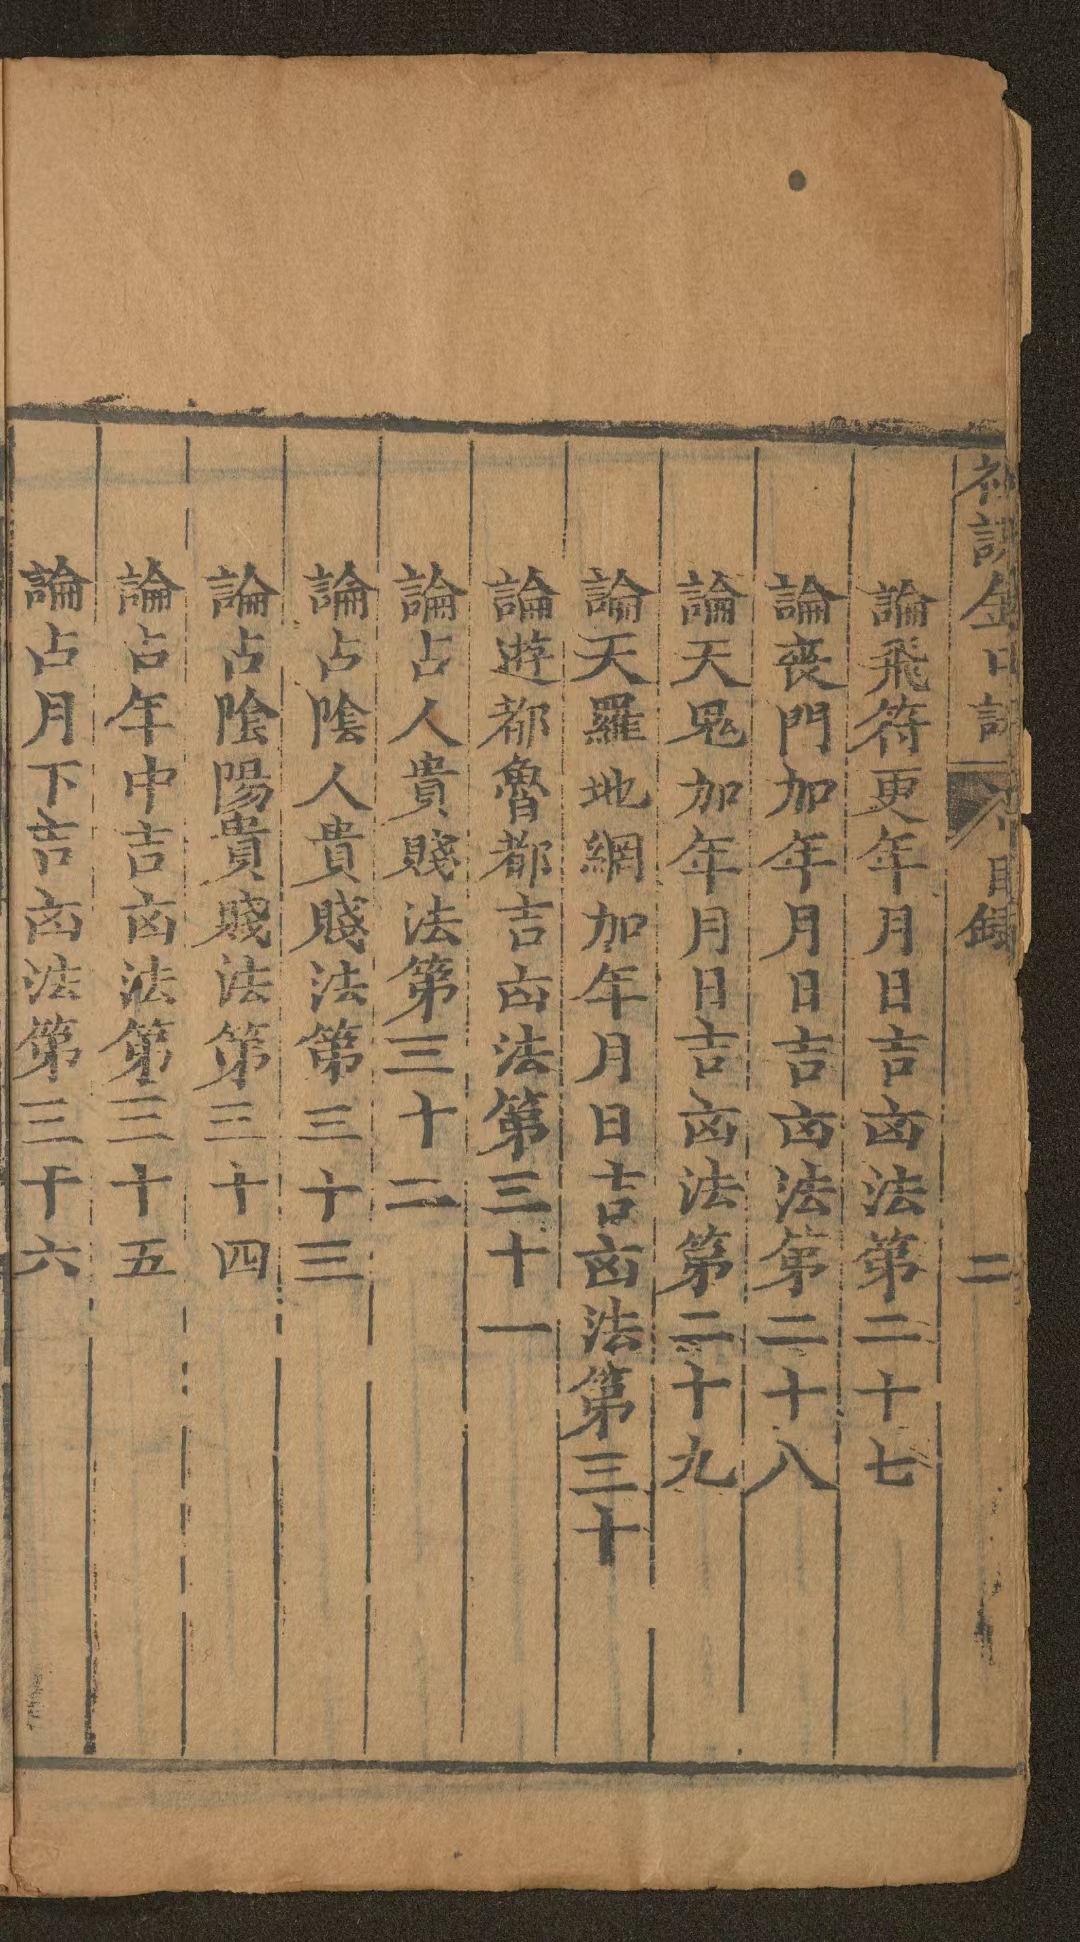 神課金口訣 目錄 二
論飛符更年月日吉凶法第二十七
論喪門加年月日吉凶法第二十八
論天鬼加年月日吉凶法第二十九
論天羅地網加年月日吉凶法第三十
論遊都魯都吉凶法第三十一
論占人貴賤法第三十二
論占陰人貴賤法第三十三
論占陰陽貴賤法第三十四
論占年中吉凶法第三十五
論占月下吉凶法第三十六